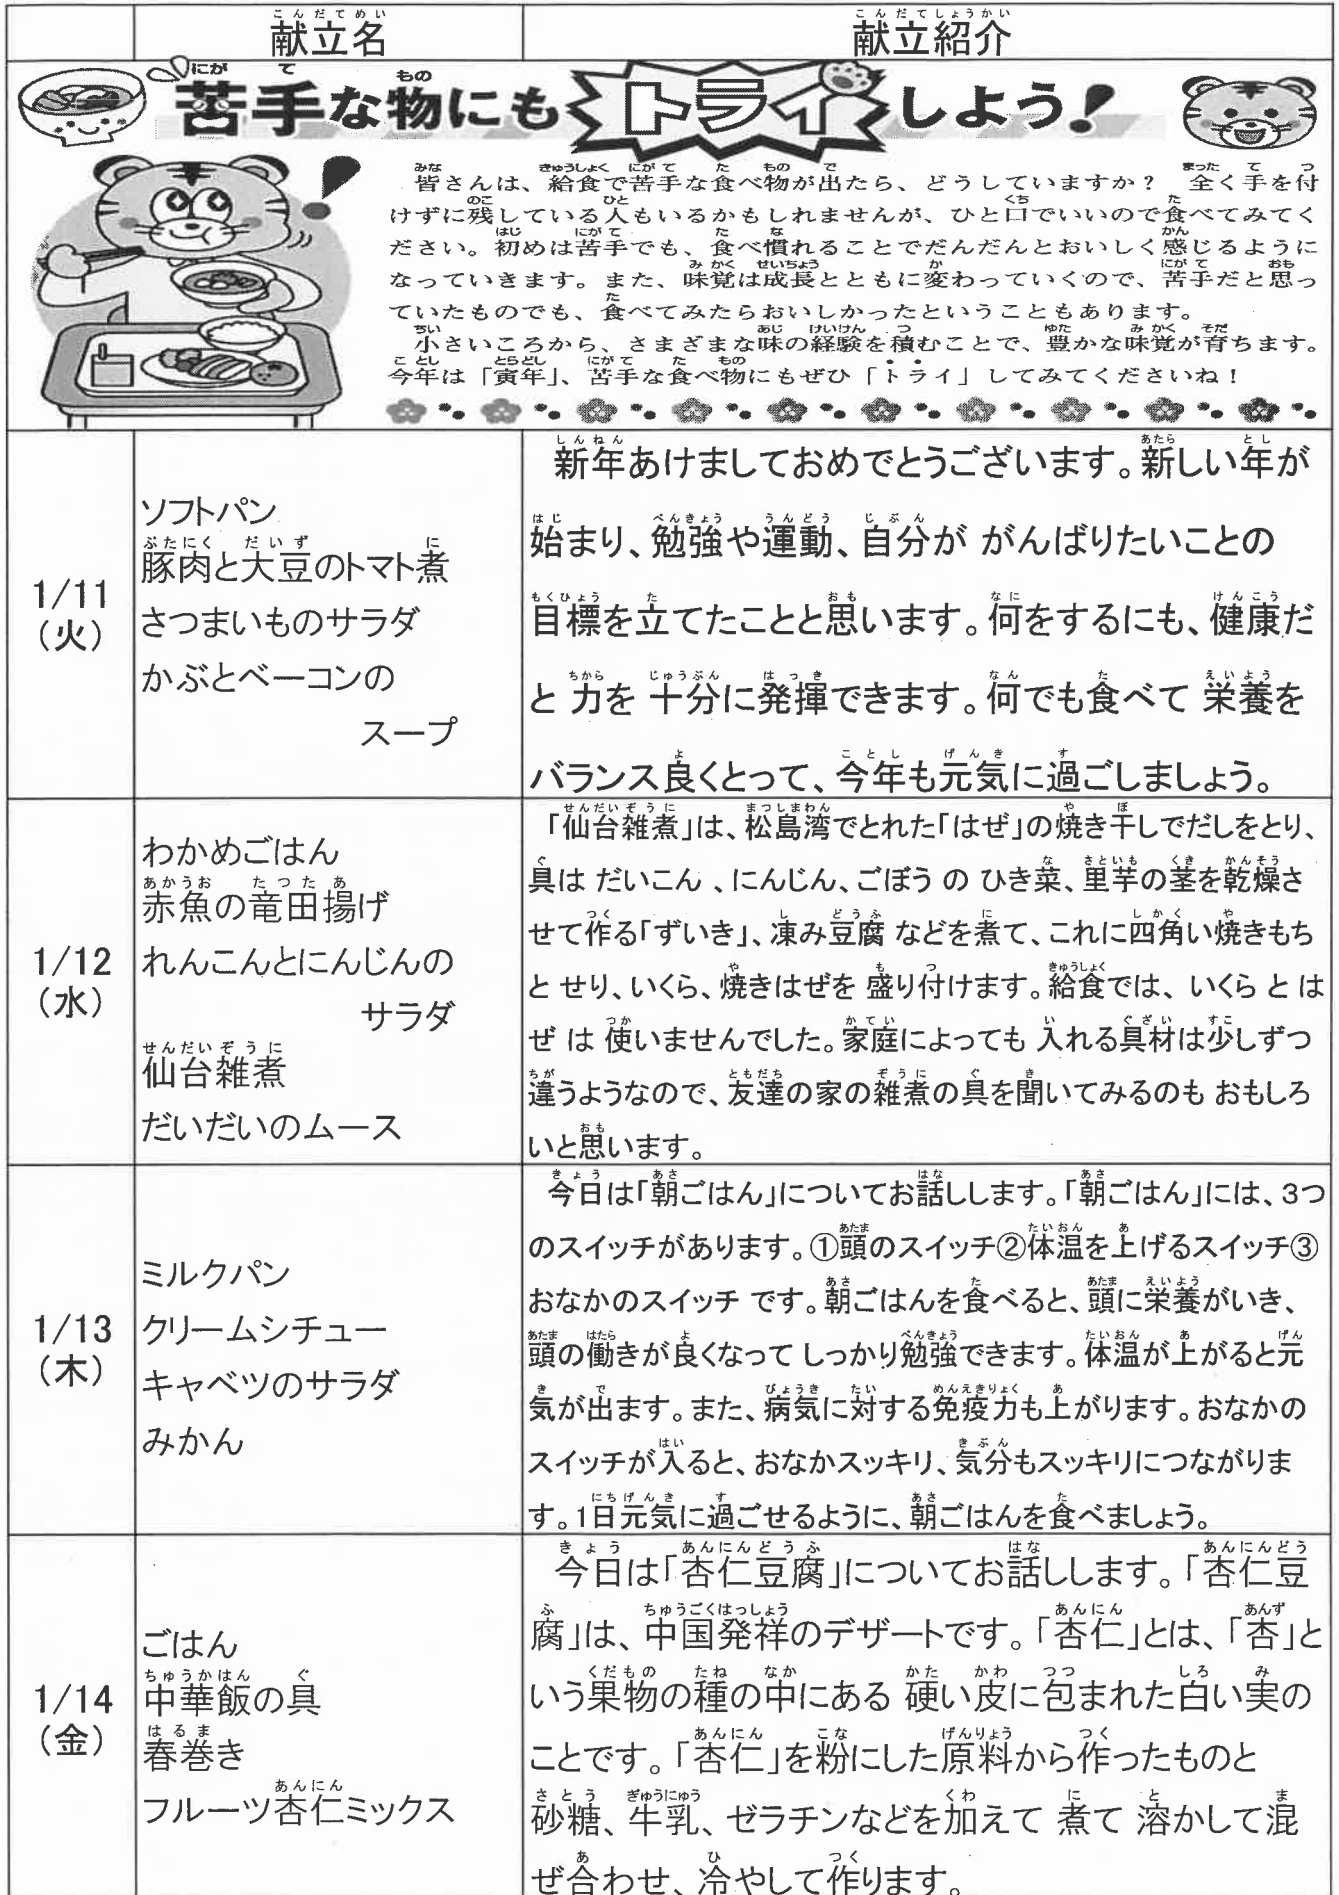 献立名 献立紹介
苦手な物にもトライしよう!
皆さんは、給食で苦手な食べ物が出たら、どうしていますか? 全く手を付
けずに残している人もいるかもしれませんが、ひと口でいいので食べてみてく
ださい。初めは苦手でも、食べ慣れることでだんだんとおいしく感じるように
なっていきます。また、味覚は成長とともに変わっていくので、苦手だと思っ
ていたものでも、食べてみたらおいしかったということもあります。
小さいころから、さまざまな味の経験を積むことで、豊かな味覚が育ちます。
今年は「寅年」、苦手な食べ物にもぜひ「トライ」してみてくださいね!
1/11
(火)
ソフトパン
豚肉と大豆のトマト煮
さつまいものサラダ
かぶとベーコンの
スープ
新年あけましておめでとうございます。新しい年が
始まり、勉強や運動、自分が がんばりたいことの
目標を立てたことと思います。何をするにも、健康だ
と 力を 十分に発揮できます。何でも食べて 栄養を
バランス良くとって、今年も元気に過ごしましょう。
1/12
(水)
わかめごはん
赤魚の竜田揚げ
れんこんとにんじんの
サラダ
仙台雑煮
だいだいのムース
「仙台雑煮」は、松島湾でとれた「はぜ」の焼き干しでだしをとり、
具は だいこん 、にんじん、ごぼう の ひき菜、里芋の茎を乾燥さ
せて作る「ずいき」、凍み豆腐 などを煮て、これに四角い焼きもち
と せり、いくら、焼きはぜを 盛り付けます。給食では、 いくら と は
ぜ は 使いませんでした。家庭によっても 入れる具材は少しずつ
違うようなので、友達の家の雑煮の具を聞いてみるのも おもしろ
いと思います。
1/13
(木)
ミルクパン
クリームシチュー
キャベツのサラダ
みかん
今日は「朝ごはん」についてお話しします。「朝ごはん」には、3つ
のスイッチがあります。①頭のスイッチ②体温を上げるスイッチ③
おなかのスイッチ です。朝ごはんを食べると、頭に栄養がいき、
頭の働きが良くなって しっかり勉強できます。体温が上がると元
気が出ます。また、病気に対する免疫力も上がります。おなかの
スイッチが入ると、おなかスッキリ、気分もスッキリにつながりま
す。1日元気に過ごせるように、朝ごはんを食べましょう。
1/14
(金)
ごはん
中華飯の具
春巻き
フルーツ杏仁ミックス
今日は「杏仁豆腐」についてお話しします。「杏仁豆
腐」は、中国発祥のデザートです。「杏仁」とは、「杏」と
いう果物の種の中にある 硬い皮に包まれた白い実の
ことです。「杏仁」を粉にした原料から作ったものと
砂糖、牛乳、ゼラチンなどを加えて 煮て 溶かして混
ぜ合わせ、冷やして作ります。